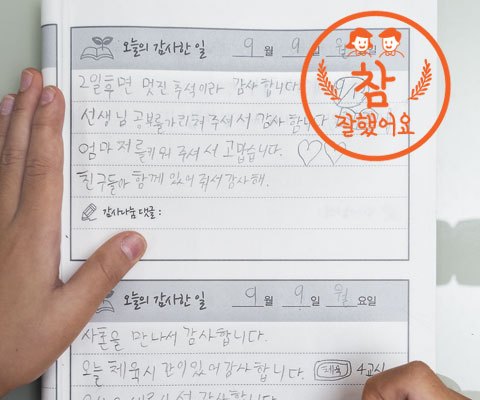 오늘의 감사한 일 9 월 9 일 요일
2일후면 멋진 추석이라 감사합니다
선생님 공부를 가리켜 주셔서 감사합니다
엄마 저를 키워 주셔서 고맙습니다.
친구들아 함께 있어 줘서 감사해.
감사나눔 댓글 :
참
잘했어요
오늘의 감사한 일 9 월 9 일 월 요일
사촌을 만나서 감사합니다.
오늘 체육시간이 있어 감사합니다. 체육 4교시